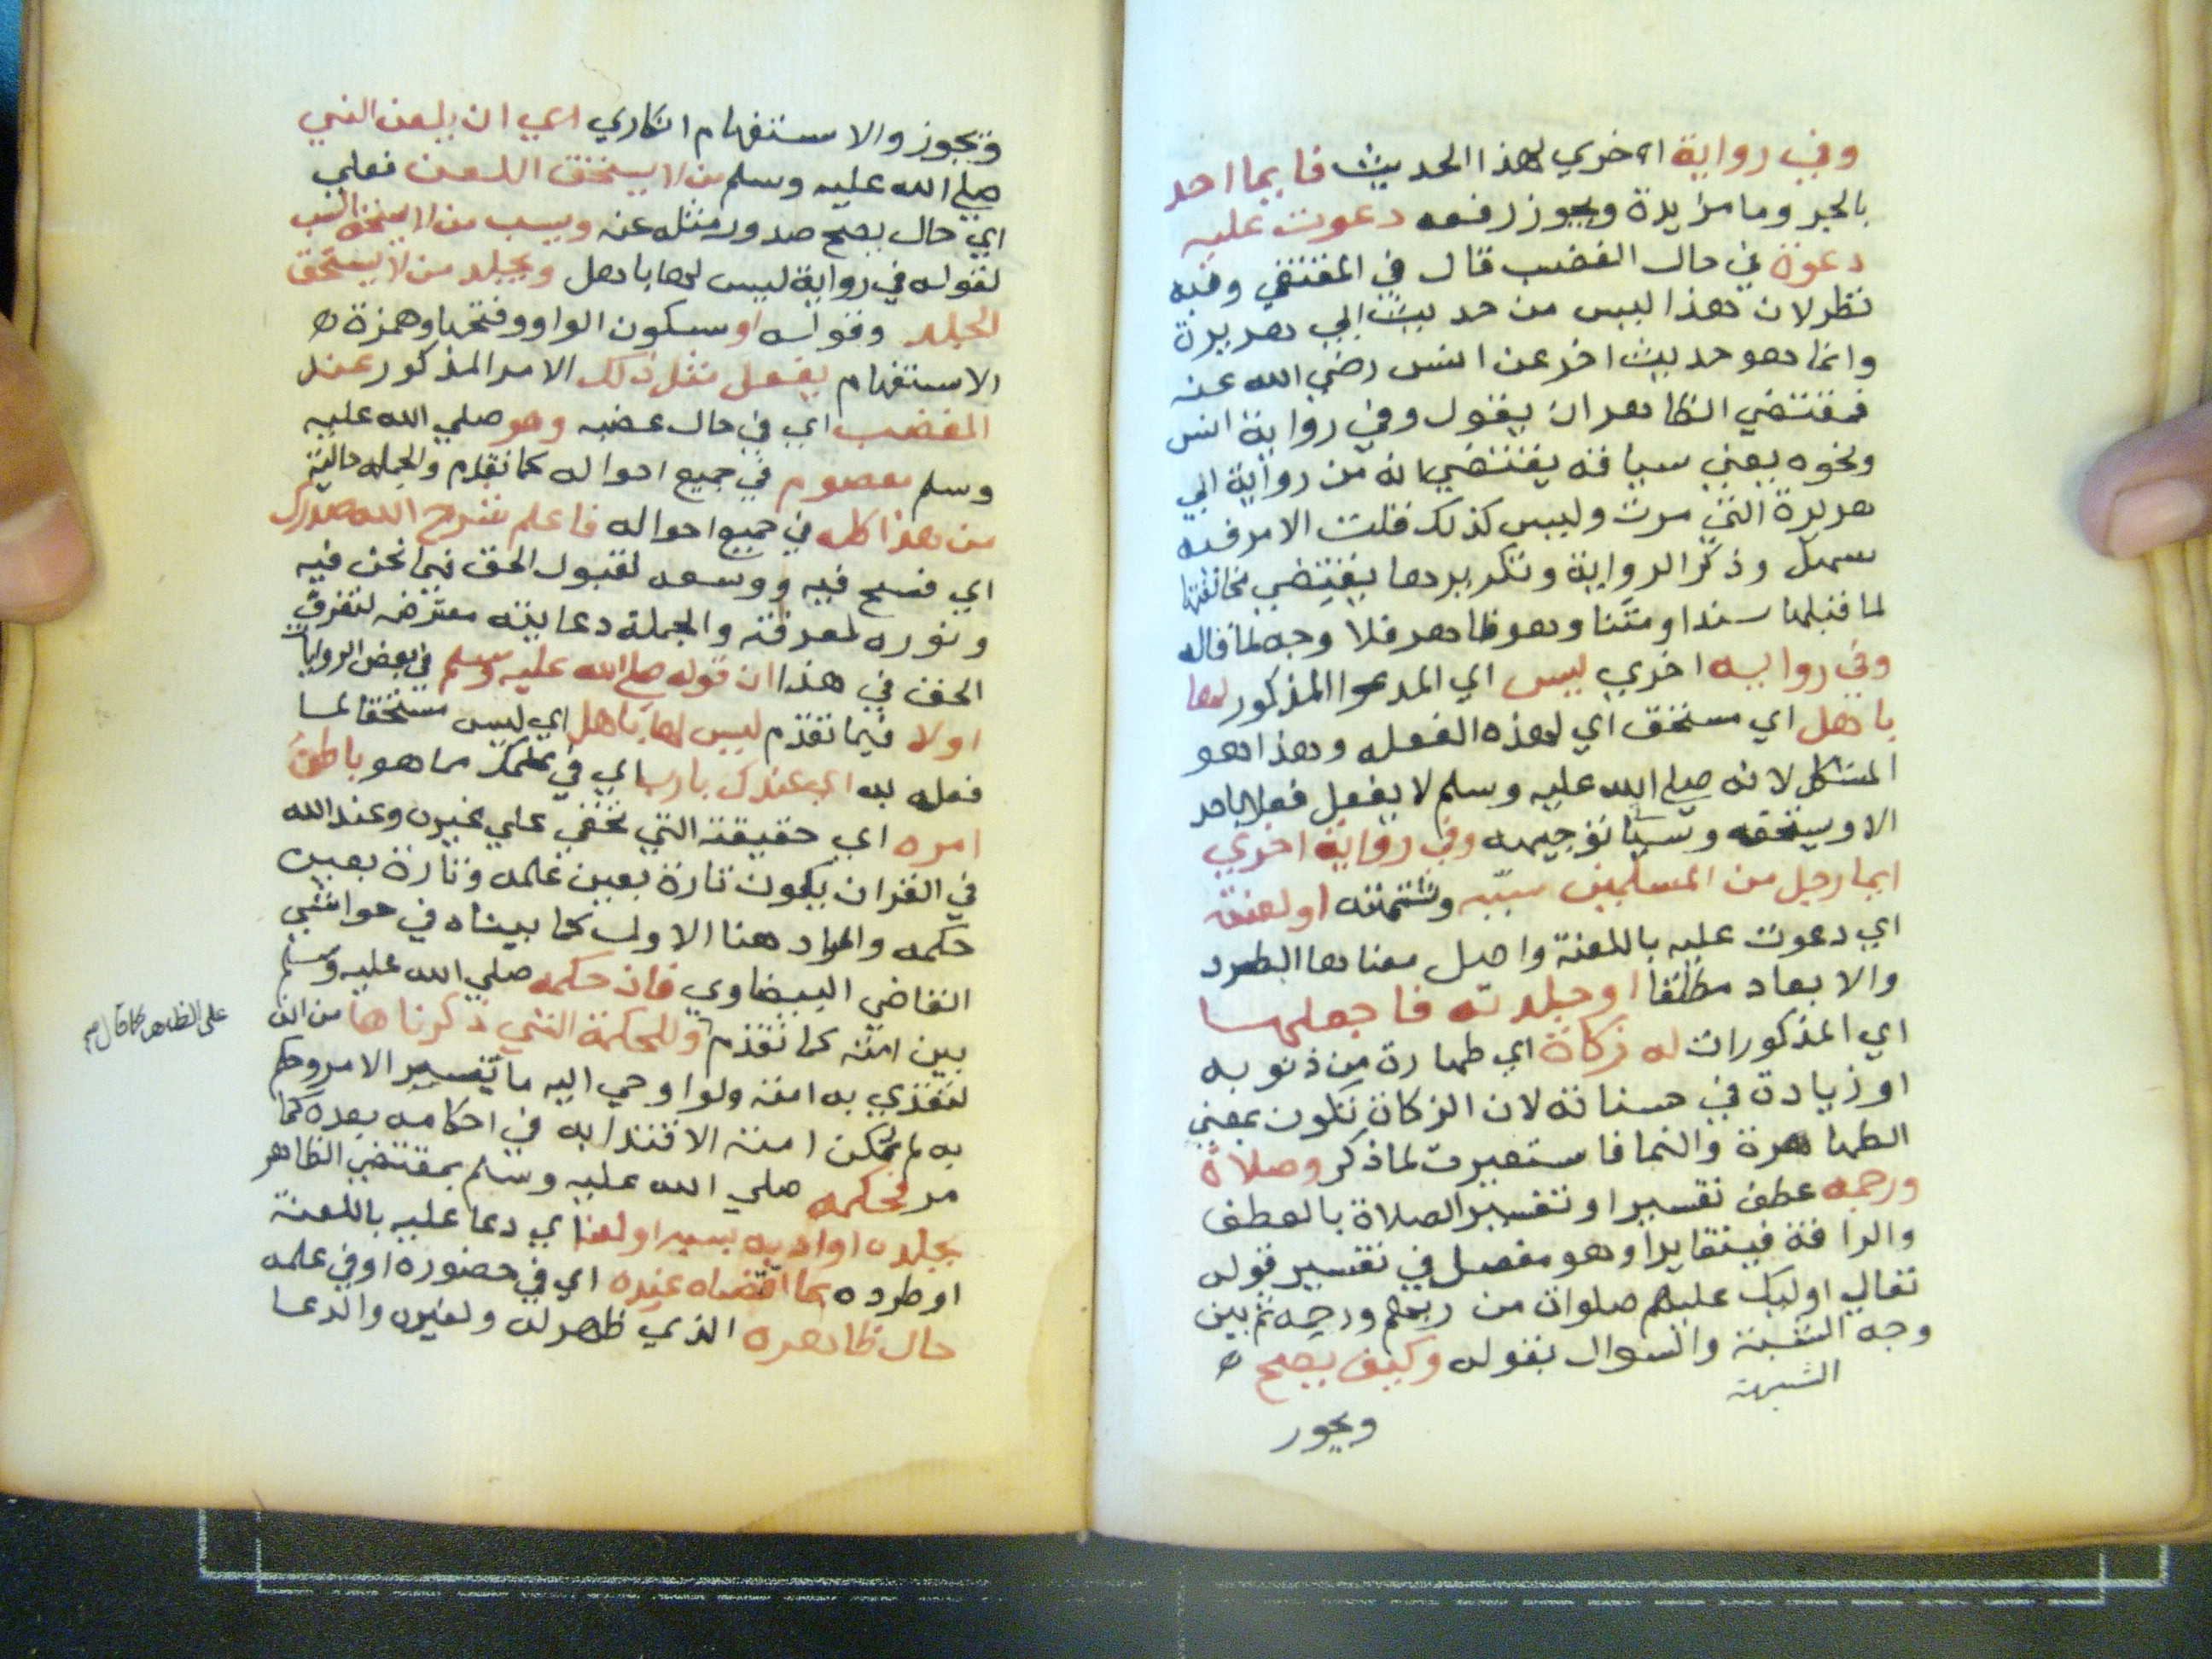 وفي رواية اخري لهذا الحديث فايما احد
بالجر وما مزيدة ويجوز رفعه دعوت عليه
دعوة في حال الغضب قال في المقتفي وفيه
نظر لان هذا ليس من حديث ابي هريرة
وانما هو حديث اخر عن انس رضي الله عنه
فمقتضي الظاهر ان يقول وفي رواية انس
ونحوه يعني سياقه يقتضي انه من رواية ابي
هريرة التي مرت وليس كذلك قلت الامر فيه
سهل وذكر الرواية وتكريرها يقتضي مخالفتها
لما قبلها سندا ومتنا وهو ظاهر فلا وجه لما قاله
وفي روايه اخري ليس اي المدعوا المذكور لها
باهل اي مستحق اي لهذه الفعله وهذا هو
المشكل لانه صلي الله عليه وسلم لا يفعل فعلا باحد
الا ويستحقه وسياتي توجيهه وفي رواية اخري
ايما رجل من المسلمين سببه وشتمته او لعنته
اي دعوت عليه باللعنة واصل معناها الطرد
والابعاد مطلقا او جلدته فاجعلها
اي المذكورات له زكاة اي طهارة من ذنوبه
او زيادة في حسناته لان الزكاة تكون بمعني
الطهاهرة والنما فاستعيرت لما ذكر وصلاة
ورحمه عطف تفسير او تفسير الصلاة بالعطف
والرافة فيتغايرا وهو مفصل في تفسير قوله
تعالي اوليك عليهم صلوات من ربهم ورحمه ثم بين
وجه الشبهة والسوال بقوله وكيف يصح
الشبهة
ويجوز
ويجوز والاستفهام انكاري اي ان يلعن النبي
صلي الله عليه وسلم من لا يستحق اللعن فعلي
اي حال يصح صدور مثله عنه ويسب من لا يستحق السب
لقوله في رواية ليس لها باهل ويجلد من لا يستحق
الجلد وقوله او سكون الواو وفتحها وهمزة
الاستفهام يفعل مثل ذلك الامر المذكور عند
الغضب اي في حال غضبه وهو صلي الله عليه
وسلم معصوم في جميع احواله كما تقدم والجمله حالية
من هذا كله في جميع احواله فاعلم شرح الله صدرك
اي فسح فيه ووسعه لقبول الحق فيما نحن فيه
ونوره لمعرفته والجملة دعاييه معترضه لتعرف
الحق في هذا ان قوله صلي الله عليه وسلم في بعض الروايات
اولا فيما تقدم ليس لها باهل اي ليس مستحقا لما
فعله به اي عندك يا رب اي في علمك مما هو باطن
امره اي حقيقته التي تخفي علي غيره وعند الله
في القران يكون تارة بعين علمه وتارة بعين
حكمه والمراد هنا الاول كما بيناه في حواشي
القاضي البيضاوي فان حكمه صلي الله عليه وسلم
بين امته كما تقدم وللحكمة التي ذكرناها من انه
على الظاهر كما قال صح
لتقتدي به امته ولو اوحي اليه ما تفسير الامر وحكم
به لم يمكن امته الاقتدا به في احكامه بعده كما
مر فحكمه صلي الله عليه وسلم بمقتضي الظاهر
بجلده او ادبه بسبه او لعنه اي دعا عليه باللعنة
او طرده بما اقتضاه عنده اي في حضوره او في علمه
حال ظاهره الذي ظهر له ولغيره والدعا